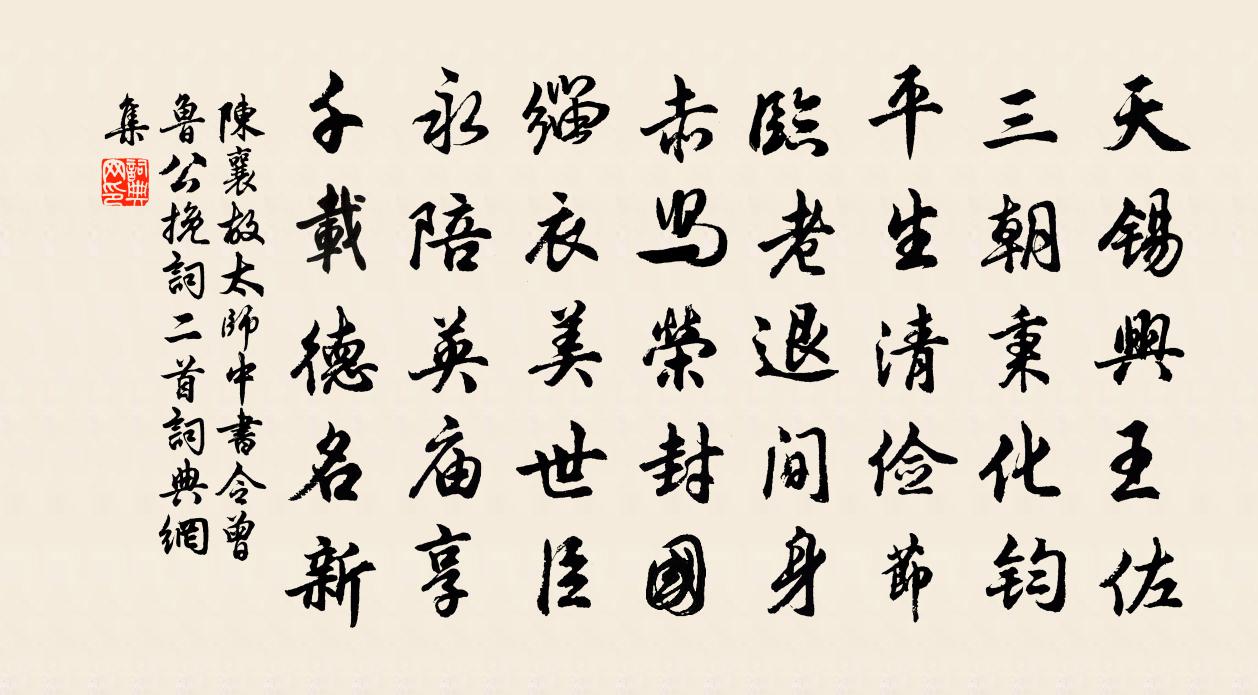 天錫興王佐
三朝秉化鈞
平生清儉節
臨老退間身
赤舄榮封國
緇衣美世臣
永陪英庙享
千載德名新
陳襄故太師中書令曾
魯公挽詞二首詞典網
集
詞典網印